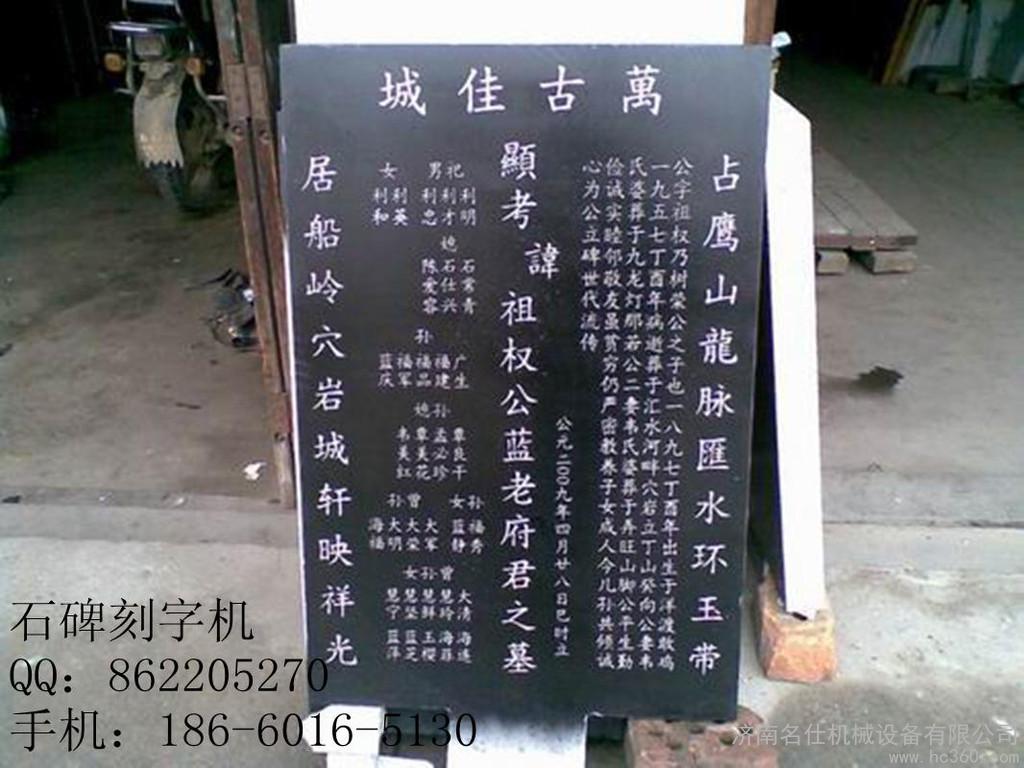 萬古佳城
占鹰山龍脉匯水环玉带
公字祖权乃树荣公之子也一八九七丁酉年出生于洋渡敢鸡
一九五七丁酉年病逝葬于汇水河畔穴岩立丁山癸向公妻韦
氏婆葬于九龙灯那若公二妻韦氏婆葬于弄旺山脚公平生勤
俭诚实睦邻敬友虽贫穷仍严密教养子女成人今儿孙共倾诚
心为公立碑世代流传
公元二00九年四月廿八日巳时立
顯考諱祖权公蓝老府君之墓
祀男
利明
利才
利忠
女
利英
利和
媳
石常青
石仕兴
陈爱容
孙
广生
福建
福品
福军
蓝庆
孙媳
覃良干
孟必珍
覃美花
韦美红
孙女
福秀
蓝静
曾孙
大军
大荣
大明
海福
曾孙女
大清
海莲
慧玲
海菲
慧鲜
玉樱
慧坚
蓝芝
慧宁
蓝萍
居船岭穴岩城轩映祥光
石碑刻字机
QQ：862205270
手机：186-6016-5130
济南名仕机械设备有限公司
www.hc360.com